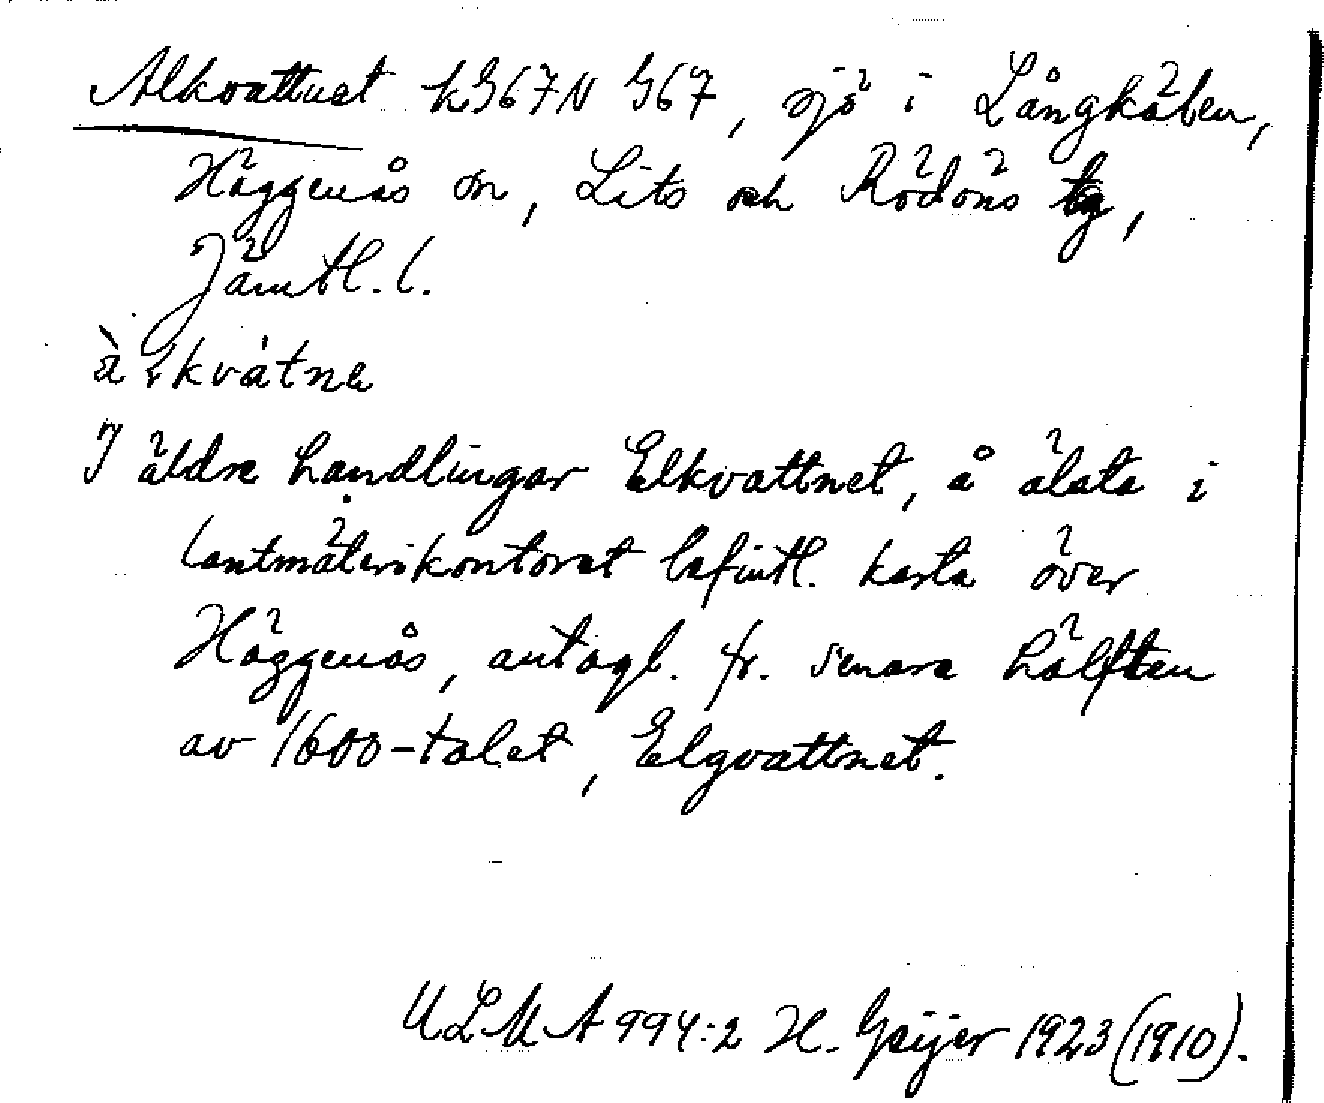 Alkvattnet kG67N G67, sjö i Långkälen,
Häggenås sn, Lits och Rödöns tg,
Jämtl. l.
I äldre handlingar Elkvattnet, å äldsta i
lantmäterikontoret befintl. karta över
Häggenås, antagl. fr. senare hälften
av 1600-talet, Elgvattnet.
ULMA 994:2 H. Geijer 1923 (1910).